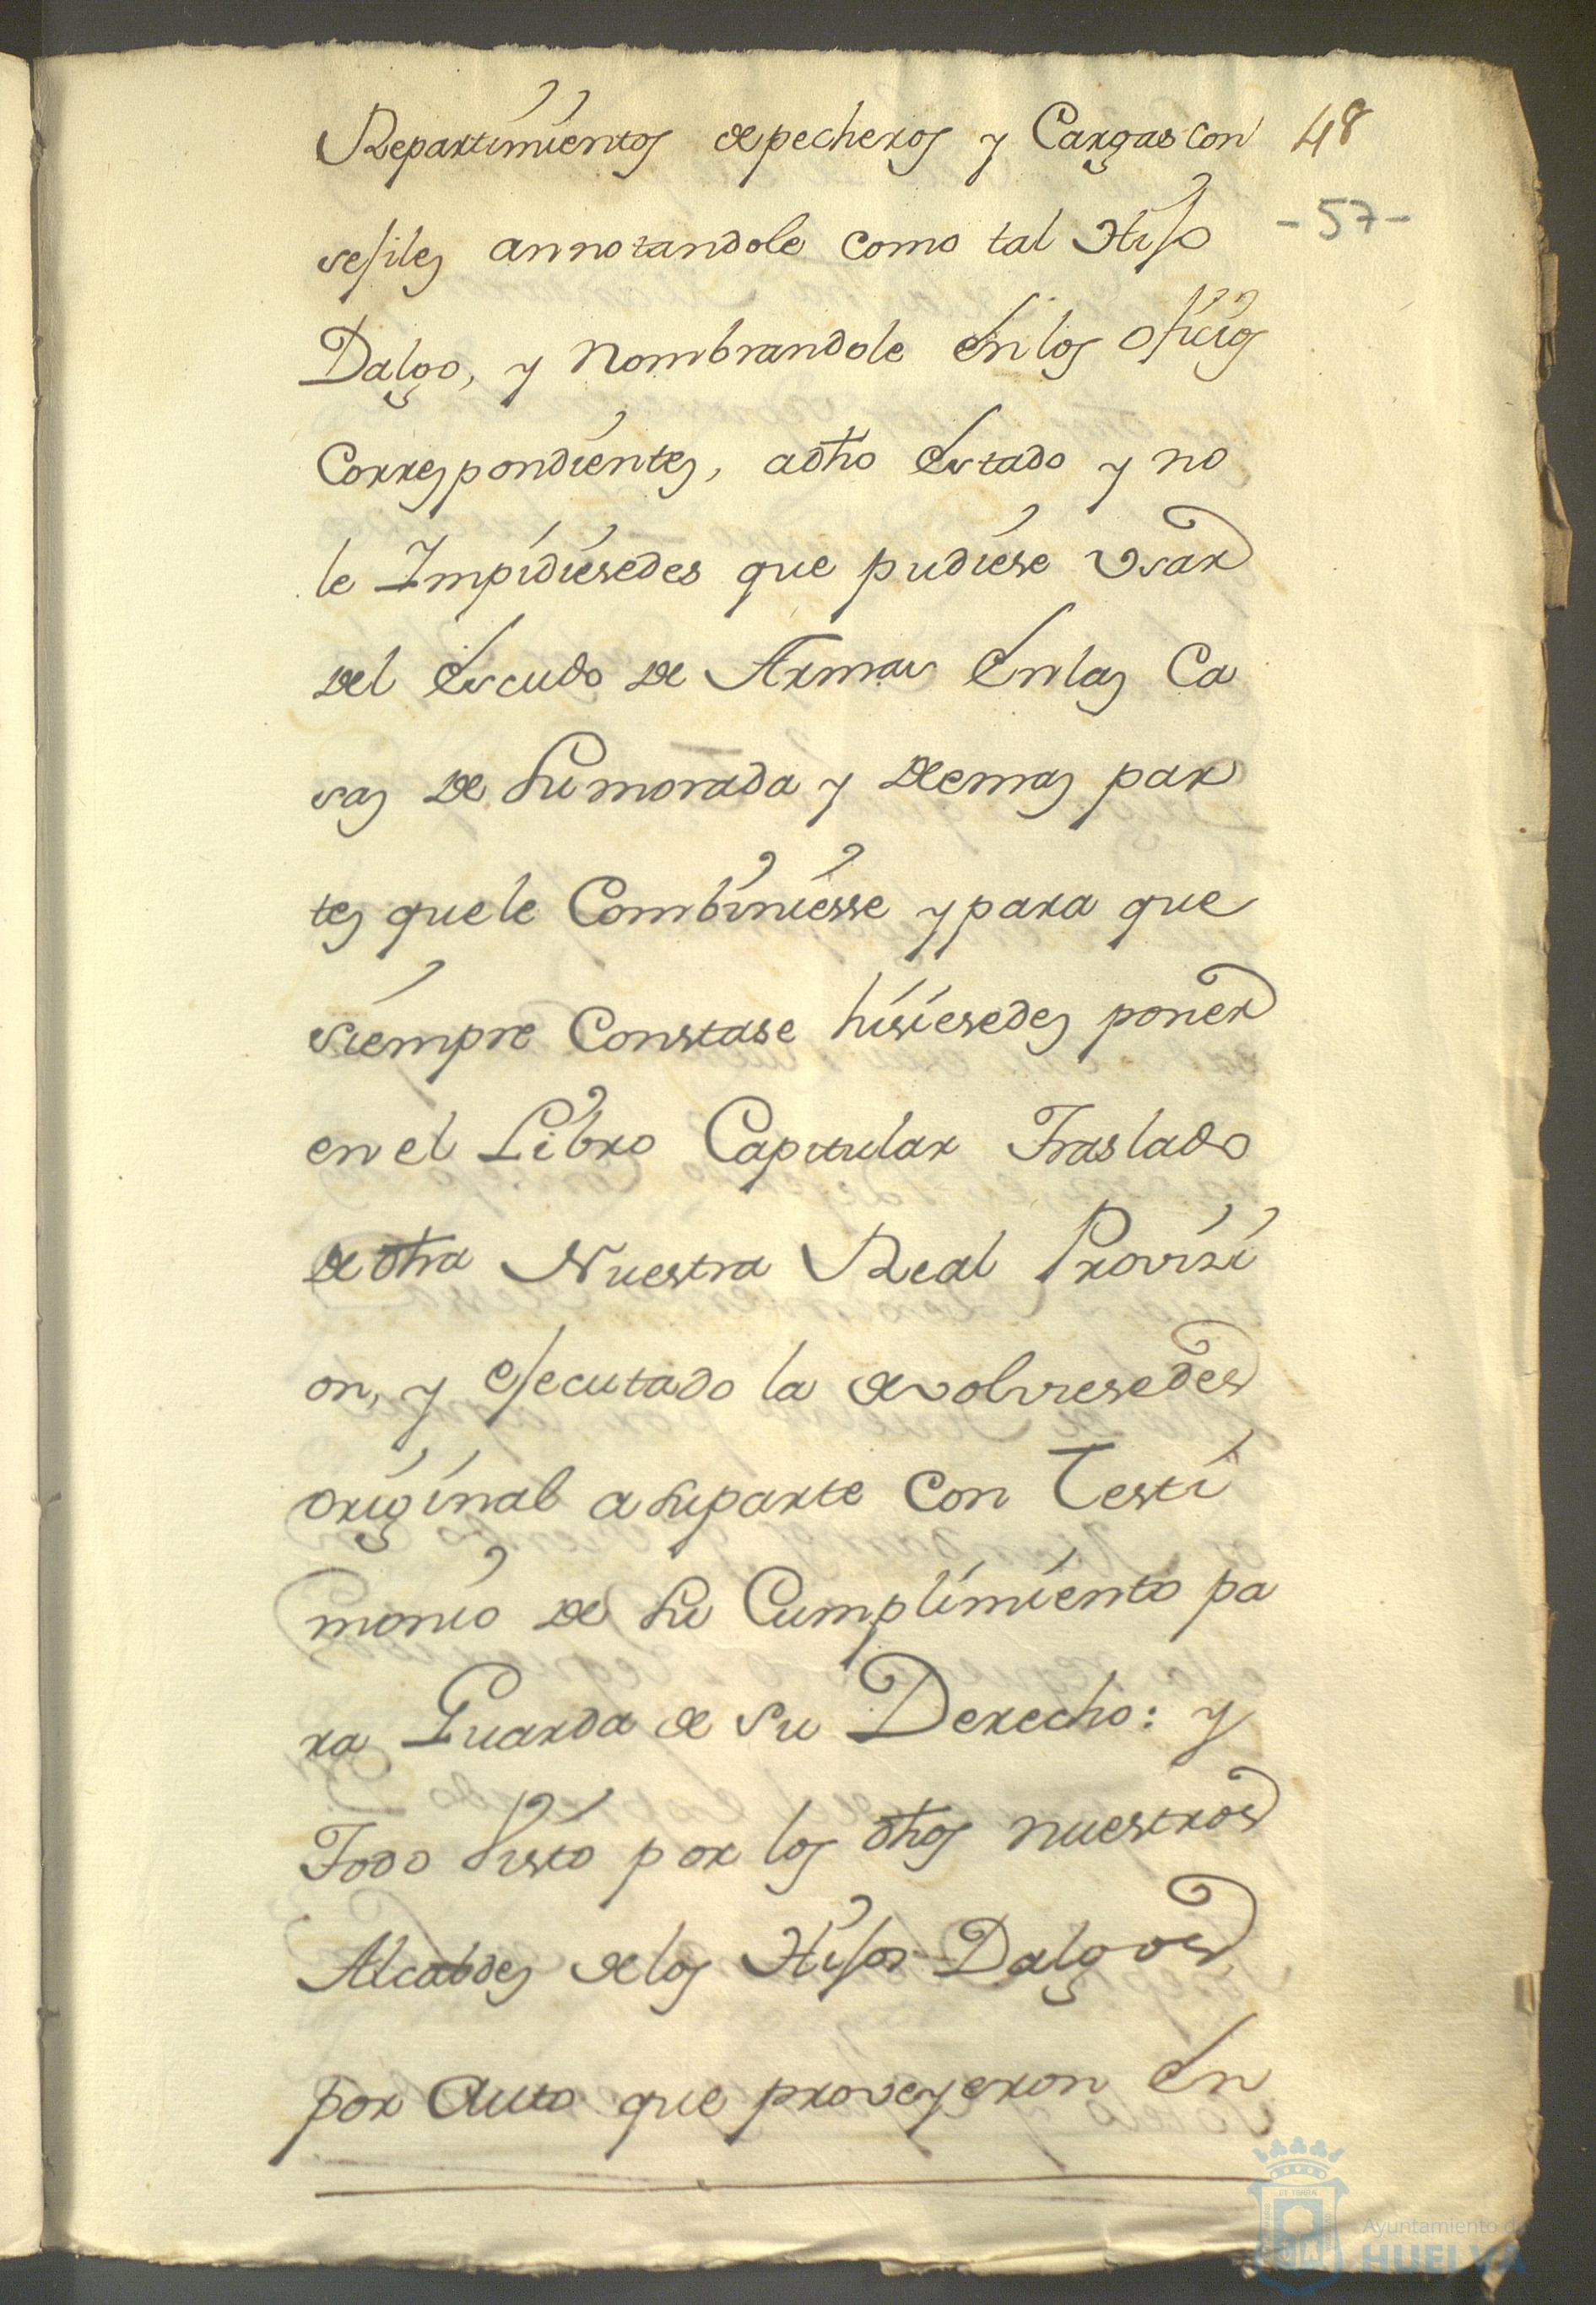 Repartimientos de pecheros y Cargas con 48
sejiles annotandole como tal Hijo -57-
Dalgo, y nombrandole en los oficios
Correspondientes, adho Estado y no
le Impidiesedes que pudiese Vsar
del Escudo de Armas En las Ca
sas de su morada y demas par
tes que le Combiniesse y para que
siempre Constase hisiesedes poner
en el Libro Capitular Traslado
de dha Nuestra Real Provizi
on, y ejecutado la devolviesedes
original a su parte con Testi
monio de su Cumplimiento pa
ra Guarda de su Derecho: y
Todo Visto por los dhos nuestros
Alcaldes de los Hijos Dalgos
por Auto que proveyeron En
Ayuntamiento de
HUELVA